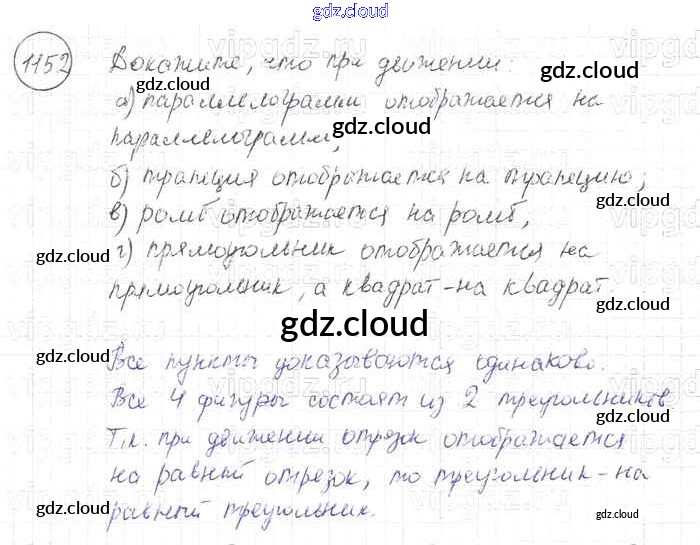 gdz.cloud
1152 Докажите, что при движении:
а) параллелограмм отображается на
параллелограмм,
б) трапеция отображается на трапецию;
в) ромб отображается на ромб,
г) прямоугольник отображается на
прямоугольник, а квадрат - на квадрат.
Все пункты доказываются одинаково.
Все 4 фигуры состоят из 2 треугольников.
Т.к. при движении отрезок отображается
на равный отрезок, то треугольник - на
равный треугольник.
gdz.cloud
gdz.cloud
gdz.cloud
gdz.cloud
gdz.cloud
gdz.cloud
gdz.cloud
gdz.cloud
gdz.cloud
gdz.cloud
gdz.cloud